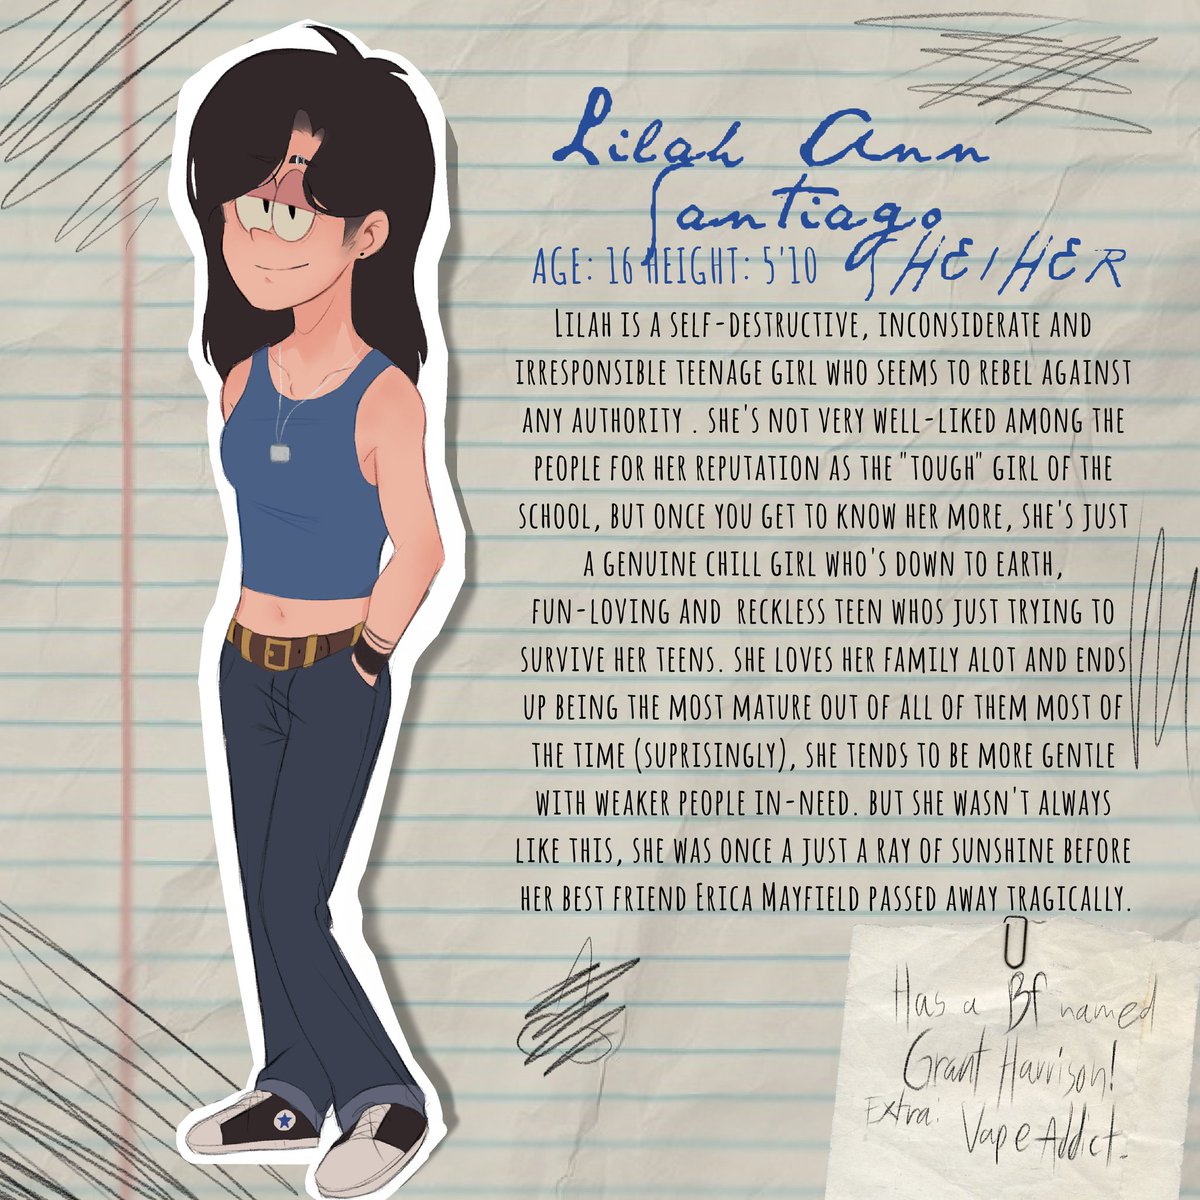 Lilah Ann
Santiago
AGE: 16 HEIGHT: 5'10 SHE/HER
LILAH IS A SELF-DESTRUCTIVE, INCONSIDERATE AND
IRRESPONSIBLE TEENAGE GIRL WHO SEEMS TO REBEL AGAINST
ANY AUTHORITY . SHE'S NOT VERY WELL-LIKED AMONG THE
PEOPLE FOR HER REPUTATION AS THE "TOUGH" GIRL OF THE
SCHOOL, BUT ONCE YOU GET TO KNOW HER MORE, SHE'S JUST
A GENUINE CHILL GIRL WHO'S DOWN TO EARTH,
FUN-LOVING AND RECKLESS TEEN WHOS JUST TRYING TO
SURVIVE HER TEENS. SHE LOVES HER FAMILY ALOT AND ENDS
UP BEING THE MOST MATURE OUT OF ALL OF THEM MOST OF
THE TIME (SUPRISINGLY), SHE TENDS TO BE MORE GENTLE
WITH WEAKER PEOPLE IN-NEED. BUT SHE WASN'T ALWAYS
LIKE THIS, SHE WAS ONCE A JUST A RAY OF SUNSHINE BEFORE
HER BEST FRIEND ERICA MAYFIELD PASSED AWAY TRAGICALLY.
Has a Bf named
Grant Harrison!
Extra: Vape Addict.